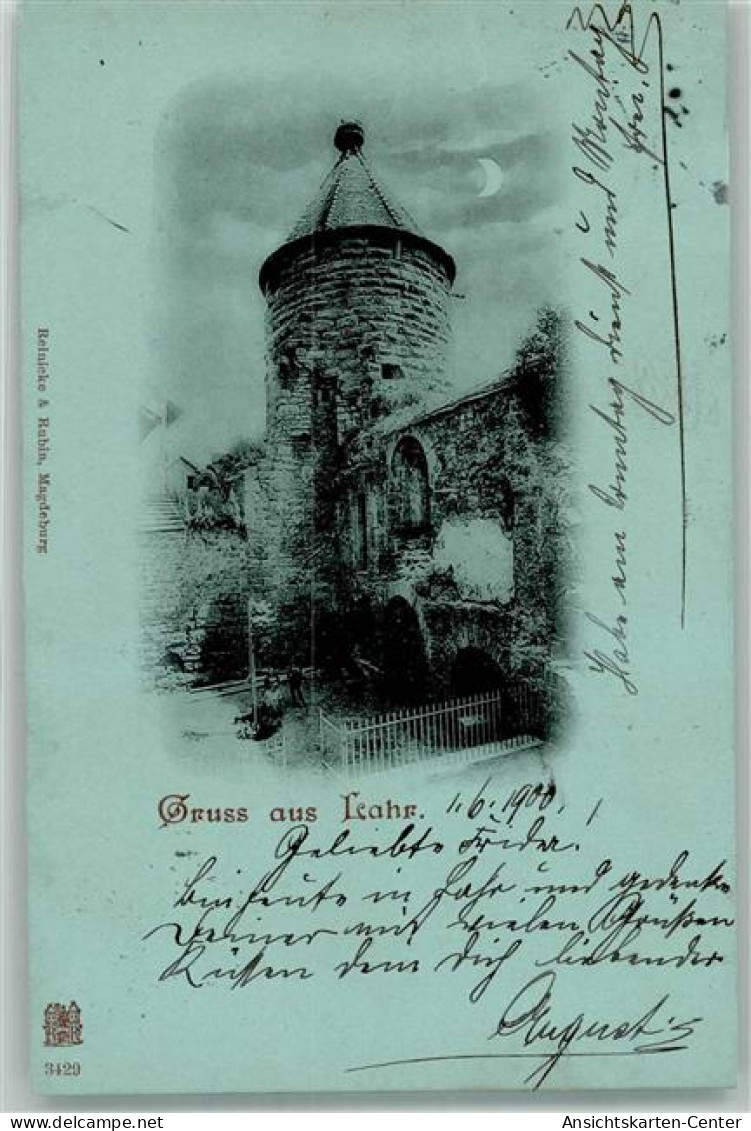 Gruss aus Lahr. 1.6.1900.
Geliebte Frieda!
Bin heute in Lahr und gedenke
Deiner mit vielen Grüßen
Küssen dem Dich liebender
August
Habe am Sonntag Dienst und Montag
frei.
Reinicke & Rubin, Magdeburg
3429
delcampe.net
Ansichtskarten-Center